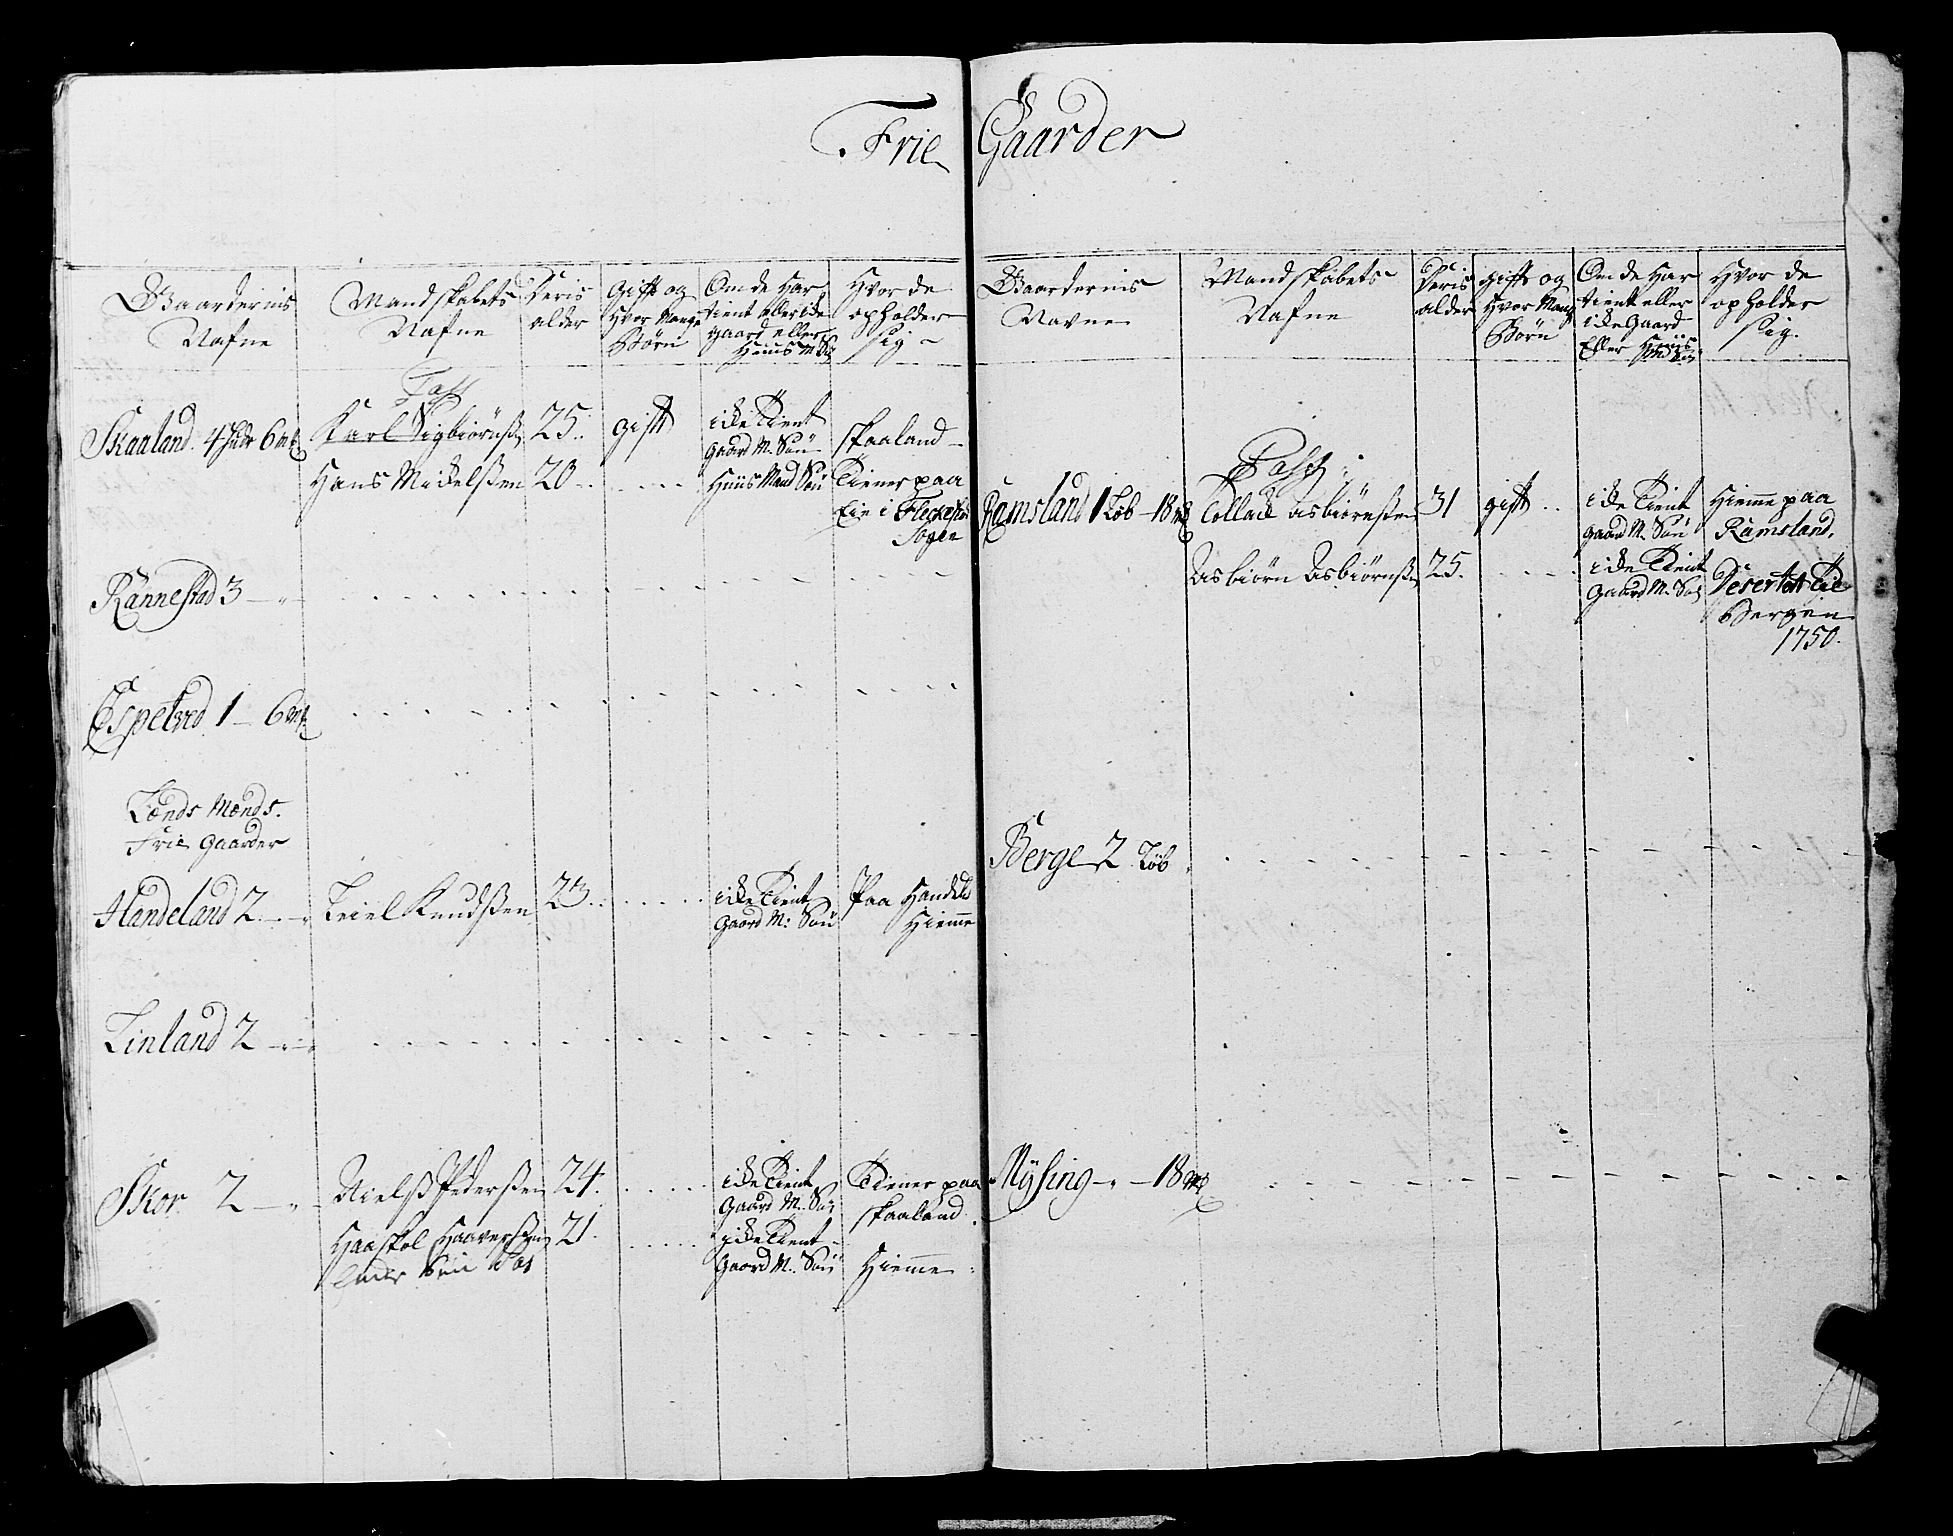 Frie Gaarder
Gaardernis
Nafne
Mandskabets
Nafne
Deris
alder
gift og
Hvor Mange
Børn
Om de Har
tient eller icke
gaard eller
Huus M. Søn
Hvor de
opholder
sig
Pass
Skaaland. 4 Hudr 6 mk
Karl Sigbiørnss
25.
gift
icke Tient
gaard M. Søn
Skaaland
Hans Mickelssen
20
Huus Mand Søn
Tiener paa
Eie i Fleckef
Sogen
Rannestad 3
Espeland 1 - 6 mk
Lends Mends.
Frie gaarder
Handeland 2
Teiel Knudssen
23.
icke Tient
gaard M: Søn
Paa Handel
Hiemme
Linland 2
Skor 2
Nielss Pederssen
24.
icke Tient
Gaard M. Søn
Tiener paa
Skaaland
Haaskol Haaverssen
21.
icke Tient
gaard M. Søn
Hiemme
Gaardernis
Navne
Mandskabets
Nafne
Deris
alder
gift og
Hvor Mang
Børn
Om de Har
tient eller
icke Gaard
Eller Huus
Hvor de
opholder
sig.
Pass
Ramsland 1 Løb - 18 mk
Tollack Asbiørnssen
31
gift
icke Tient
gaard M. Søn
Hiemme paa
Ramsland.
Asbiørn Asbiørnss
25.
icke Tient
Gaard M. Søn
Desertert Til
Bergen
1750.
Berge 2 Løb
Mysing - " - 18 mk